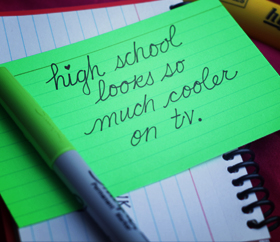 high school
looks so
much cooler
on tv.